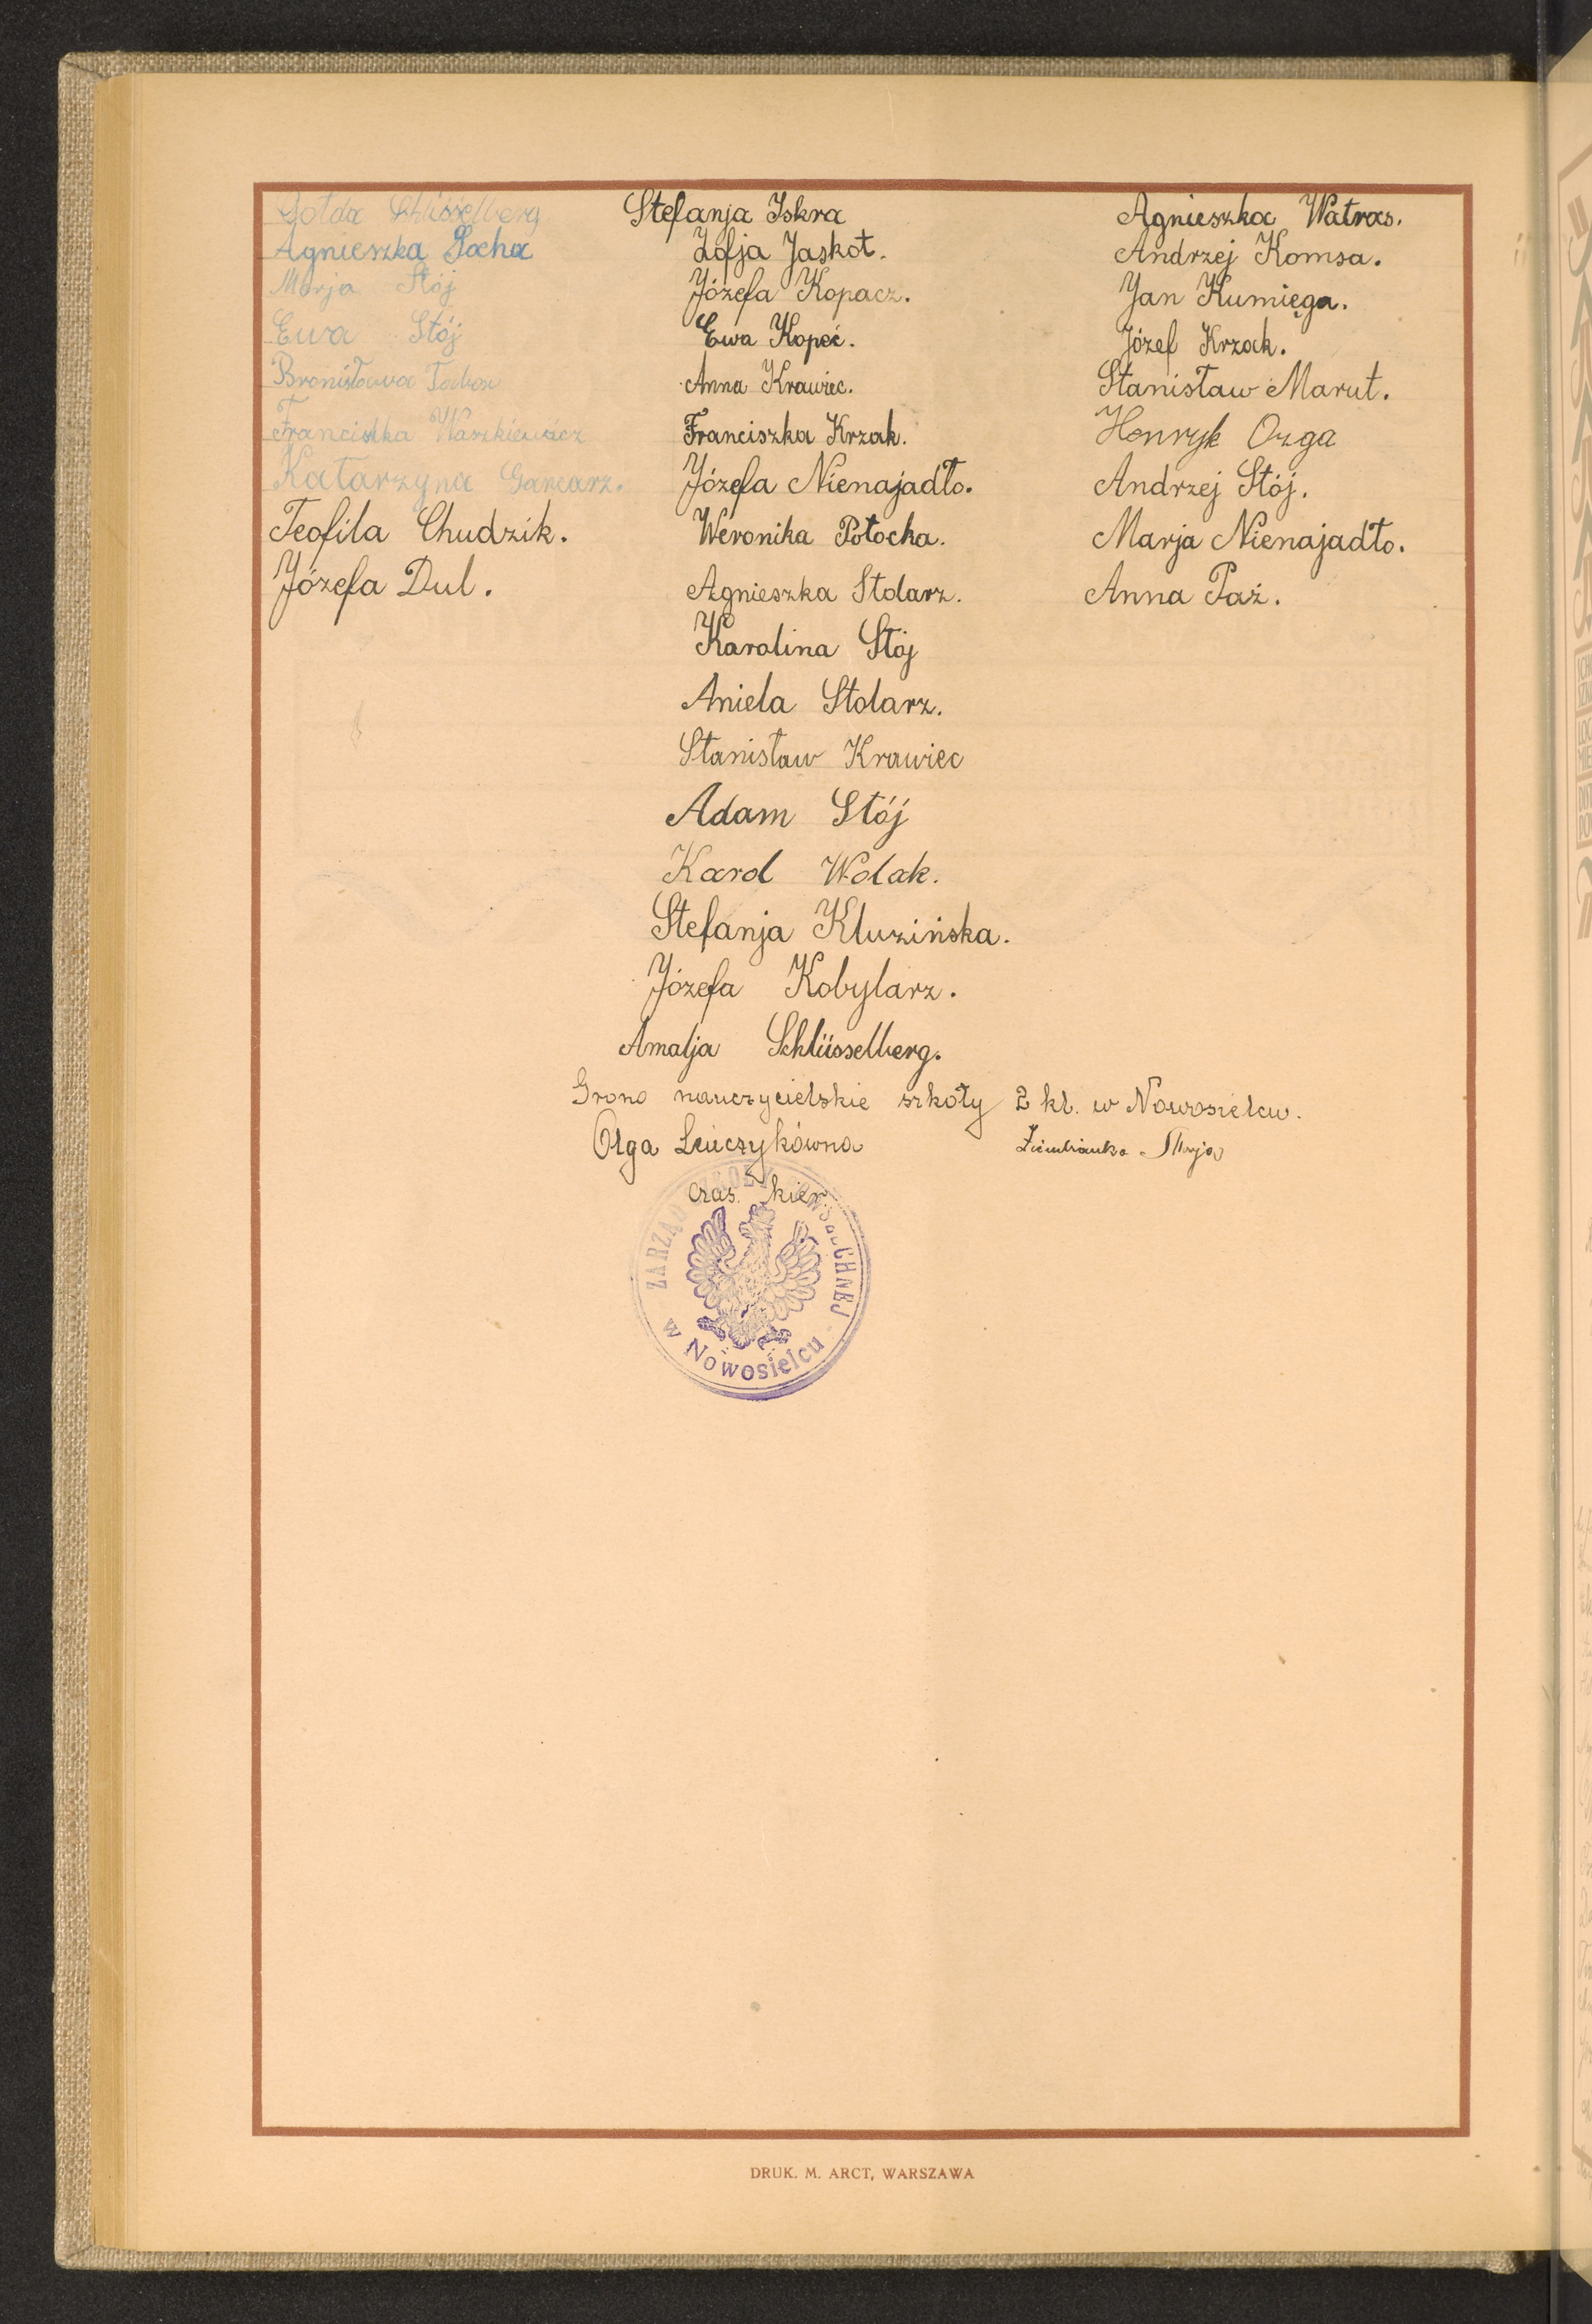 Golda Schlüsselberg.
Agnieszka Socha
Marja Stój
Ewa Stój
Bronisława
Franciszka Waszkiewicz
Katarzyna Garcarz.
Teofila Chudzik.
Józefa Dul.
Stefanja Iskra
Zofja Jaskot.
Józefa Kopacz.
Ewa Kopeć.
Anna Krawiec.
Franciszka Krzak.
Józefa Nienajadło.
Weronika Potocka.
Agnieszka Stolarz.
Karolina Stój
Aniela Stolarz.
Stanisław Krawiec
Adam Stój
Karol Wolak.
Stefanja Kluzińska.
Józefa Kobylarz.
Amalja Schlüsselberg.
Agnieszka Watras.
Andrzej Komsa.
Jan Kumięga.
Józef Krzak.
Stanisław Marut.
Henryk Ozga
Andrzej Stój.
Marja Nienajadło.
Anna Paź.
Grono nauczycielskie szkoły 2 kl. w Nowosielcu.
Olga Leńczykówna
Ziembianka Marja
czas. kier.
ZARZĄD SZKOŁY POWSZECHNEJ
w Nowosielcu
DRUK. M. ARCT, WARSZAWA